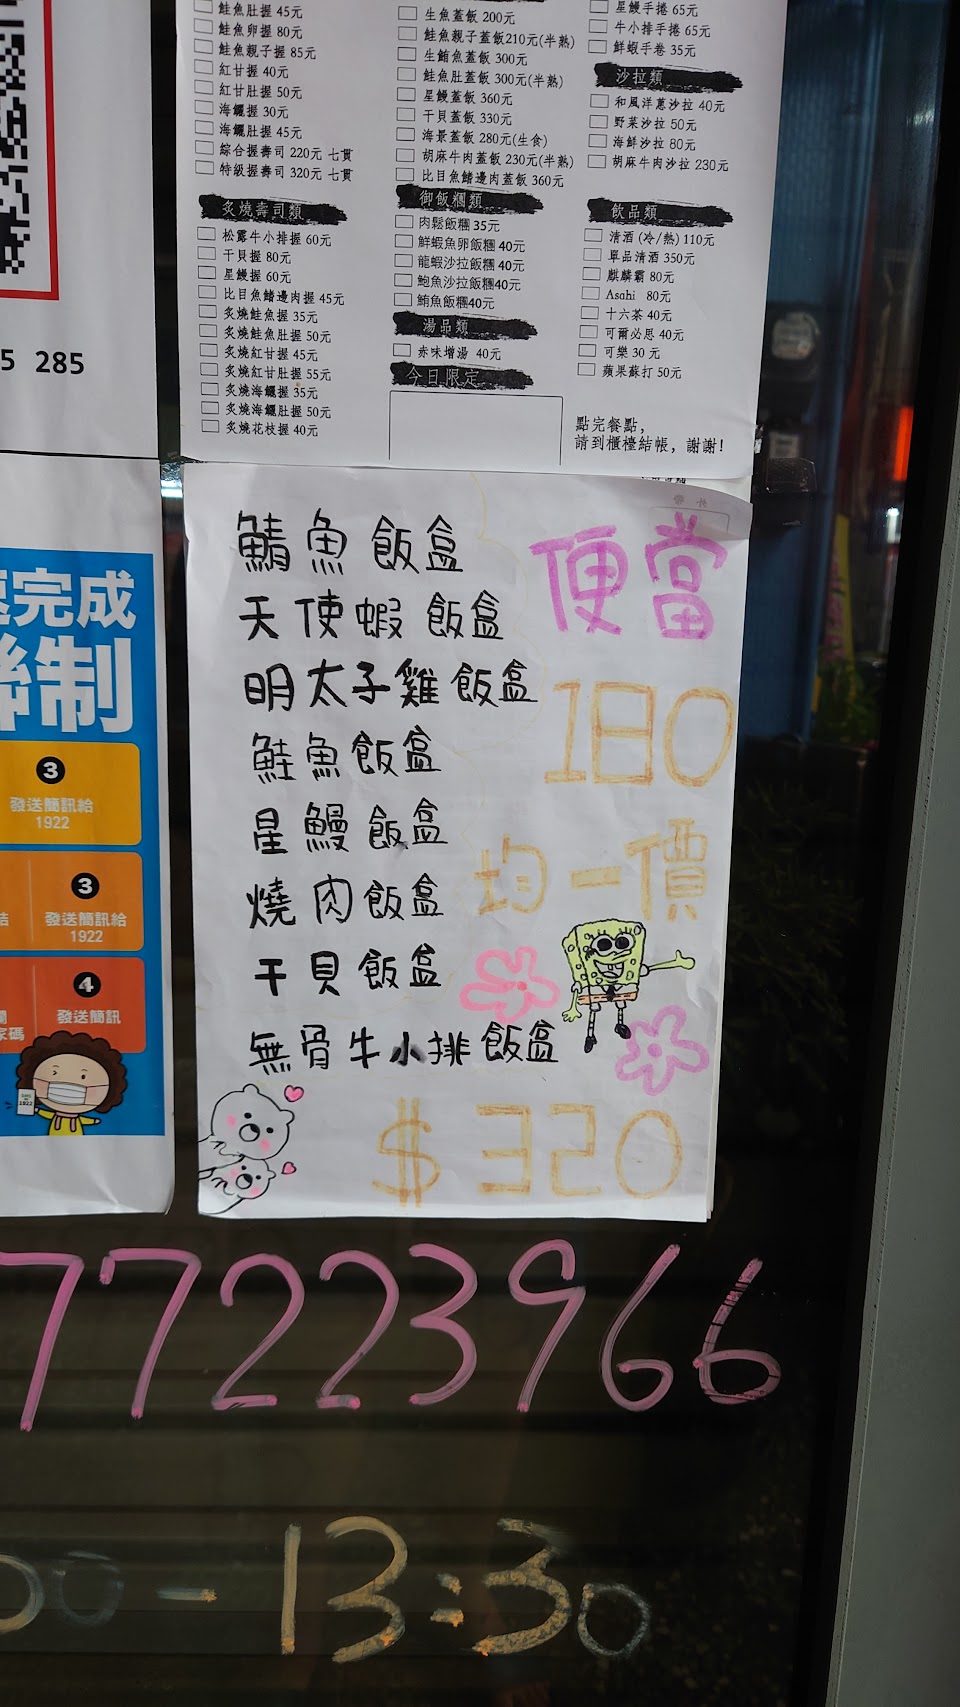 鮭魚肚握 45元
鮭魚卵握 80元
鮭魚親子握 85元
紅甘握 40元
紅甘肚握 50元
海鱺握 30元
海鱺肚握 45元
綜合握壽司 220元 七貫
特級握壽司 320元 七貫
炙燒壽司類
松露牛小排握 60元
干貝握 80元
星鰻握 60元
比目魚鰭邊肉握 45元
炙燒鮭魚握 35元
炙燒鮭魚肚握 50元
炙燒紅甘握 45元
炙燒紅甘肚握 55元
炙燒海鱺握 35元
炙燒海鱺肚握 50元
炙燒花枝握 40元
生魚蓋飯 200元
鮭魚親子蓋飯210元(半熟)
生鮪魚蓋飯 300元
鮭魚肚蓋飯 300元(半熟)
星鰻蓋飯 360元
干貝蓋飯 330元
海景蓋飯 280元(生食)
胡麻牛肉蓋飯 230元(半熟)
比目魚鰭邊肉蓋飯 360元
御飯糰類
肉鬆飯糰 35元
鮮蝦魚卵飯糰 40元
龍蝦沙拉飯糰 40元
鮑魚沙拉飯糰40元
鮪魚飯糰40元
湯品類
赤味增湯 40元
今日限定
星鰻手捲 65元
牛小排手捲 65元
鮮蝦手卷 35元
沙拉類
和風洋蔥沙拉 40元
野菜沙拉 50元
海鮮沙拉 80元
胡麻牛肉沙拉 230元
飲品類
清酒 (冷/熱) 110元
單品清酒 350元
麒麟霸 80元
Asahi 80元
十六茶 40元
可爾必思 40元
可樂 30元
蘋果蘇打 50元
點完餐點,
請到櫃檯結帳, 謝謝!
5 285
便當
180
均一價
鯖魚飯盒
天使蝦飯盒
明太子雞飯盒
鮭魚飯盒
星鰻飯盒
燒肉飯盒
干貝飯盒
無骨牛小排飯盒
$320
完成
聯制
3
發送簡訊給
1922
3
發送簡訊給
1922
4
發送簡訊
77223966
00-13:30